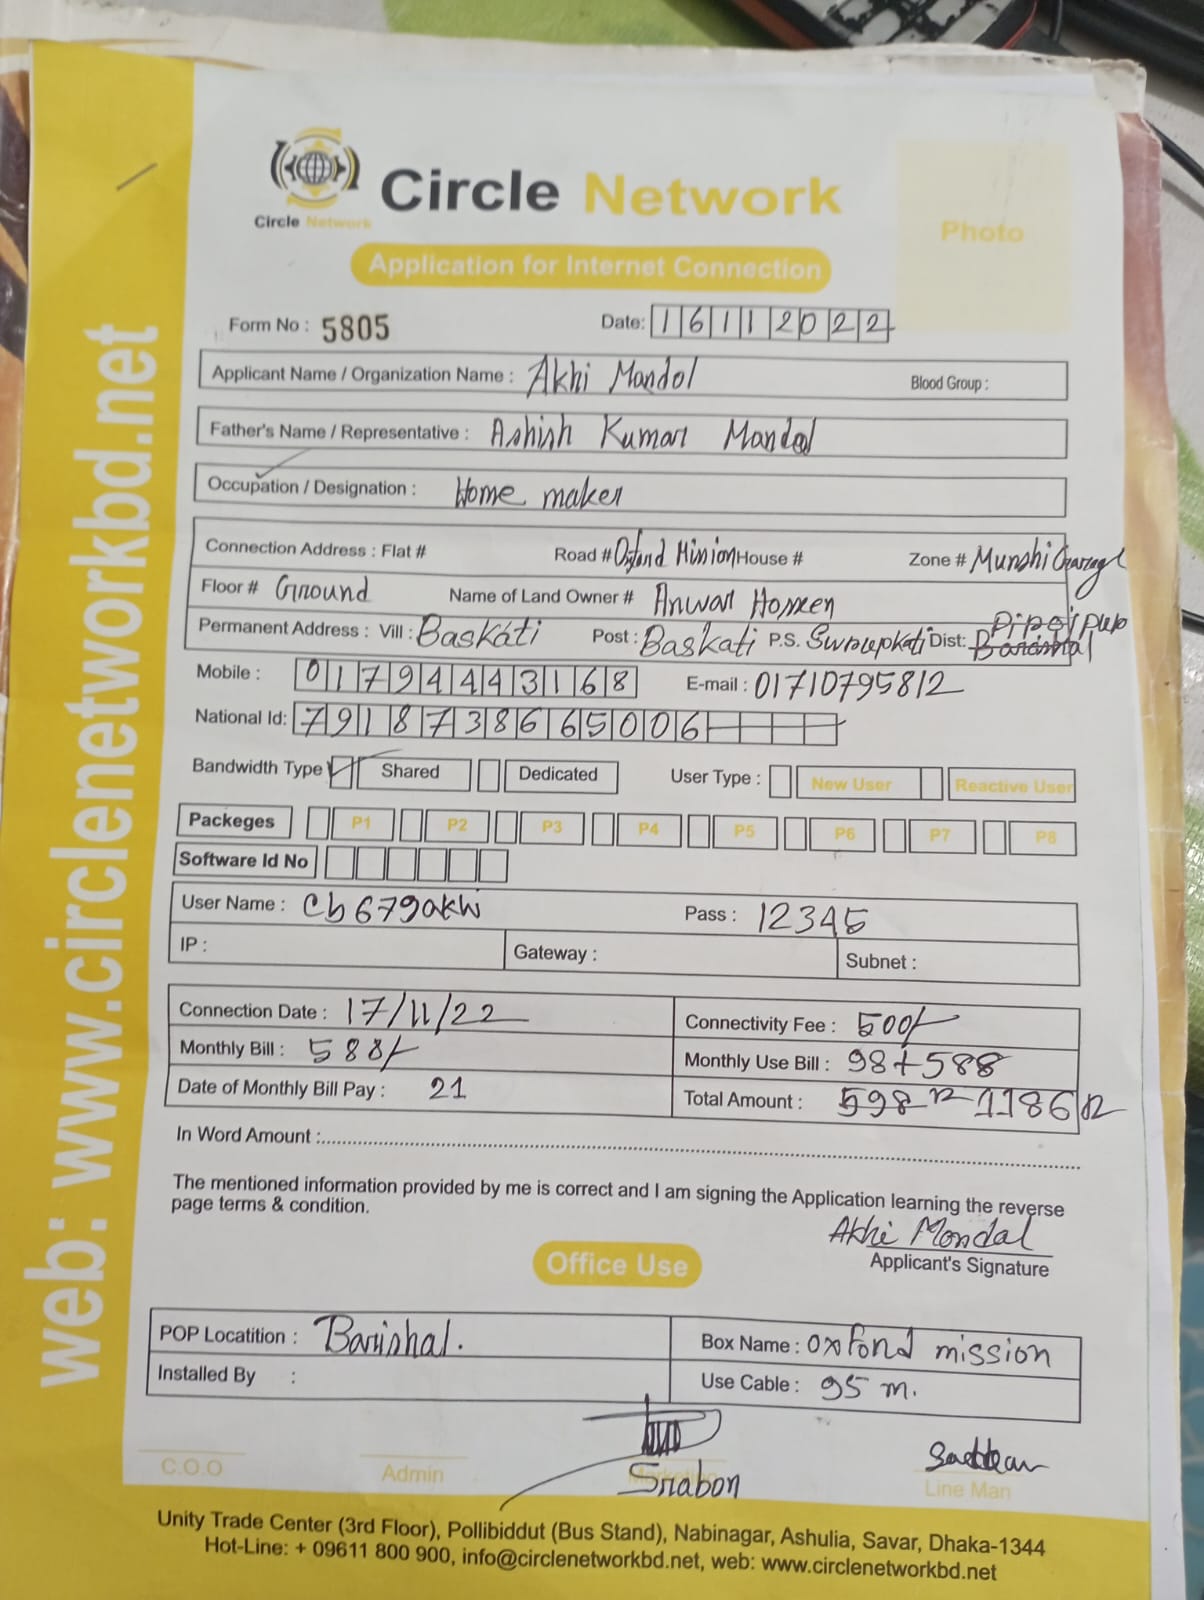 web: www.circlenetworkbd.net
Circle Network
Circle Network
Photo
Application for Internet Connection
Form No : 5805 Date: 16112022
Applicant Name / Organization Name : Akhi Mandol Blood Group :
Father's Name / Representative : Ashish Kumar Mandal
Occupation / Designation : Home maker
Connection Address : Flat # Road # Oxford Mission House # Zone # Munshi Garage
Floor # Ground Name of Land Owner # Anwar Hossen
Permanent Address : Vill : Baskati Post : Baskati P.S. Swrupkati Dist: Barishal Pirojpur
Mobile : 01794443168 E-mail : 01710795812
National Id: 7918738665006
Bandwidth Type Shared Dedicated User Type : New User Reactive User
Packeges P1 P2 P3 P4 P5 P6 P7 P8
Software Id No
User Name : cb679akhi Pass : 12345
IP : Gateway : Subnet :
Connection Date : 17/11/22 Connectivity Fee : 500/-
Monthly Bill : 588/- Monthly Use Bill : 98+588
Date of Monthly Bill Pay : 21 Total Amount : 598 1186
In Word Amount :
The mentioned information provided by me is correct and I am signing the Application learning the reverse
page terms & condition.
Akhi Mondal
Applicant's Signature
Office Use
POP Locatition : Barishal. Box Name : oxford mission
Installed By : Use Cable : 95 m.
Srabon
C.O.O Admin Marketing Line Man
Unity Trade Center (3rd Floor), Pollibiddut (Bus Stand), Nabinagar, Ashulia, Savar, Dhaka-1344
Hot-Line: + 09611 800 900, info@circlenetworkbd.net, web: www.circlenetworkbd.net